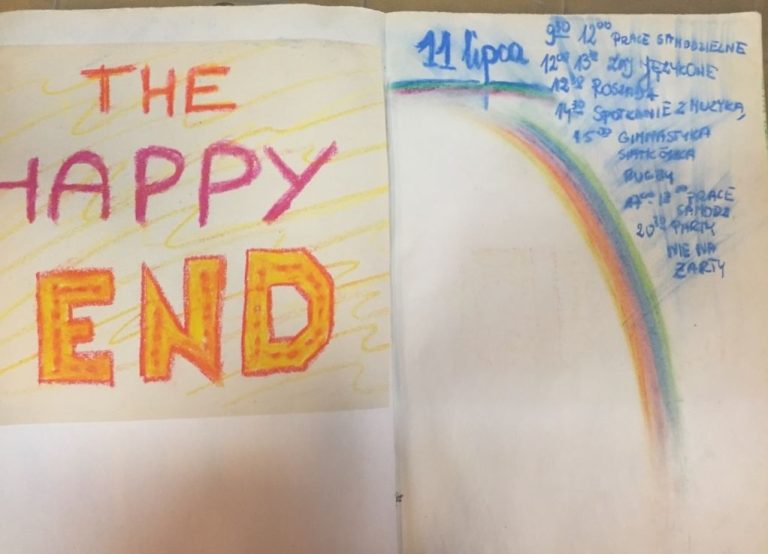 THE
HAPPY
END
11 lipca
9³⁰ 12⁰⁰ PRACE SAMODZIELNE
12⁰⁰ 13 ZAJ JĘZYKOWE
ROSZADA
14³⁰ SPOTKANIE Z MUZYKĄ
15⁰⁰ GIMNASTYKA
SIATKÓWKA
RUGBY
PRACE
SAMODZ
20³⁰ PARTY
NIE NA
ŻARTY